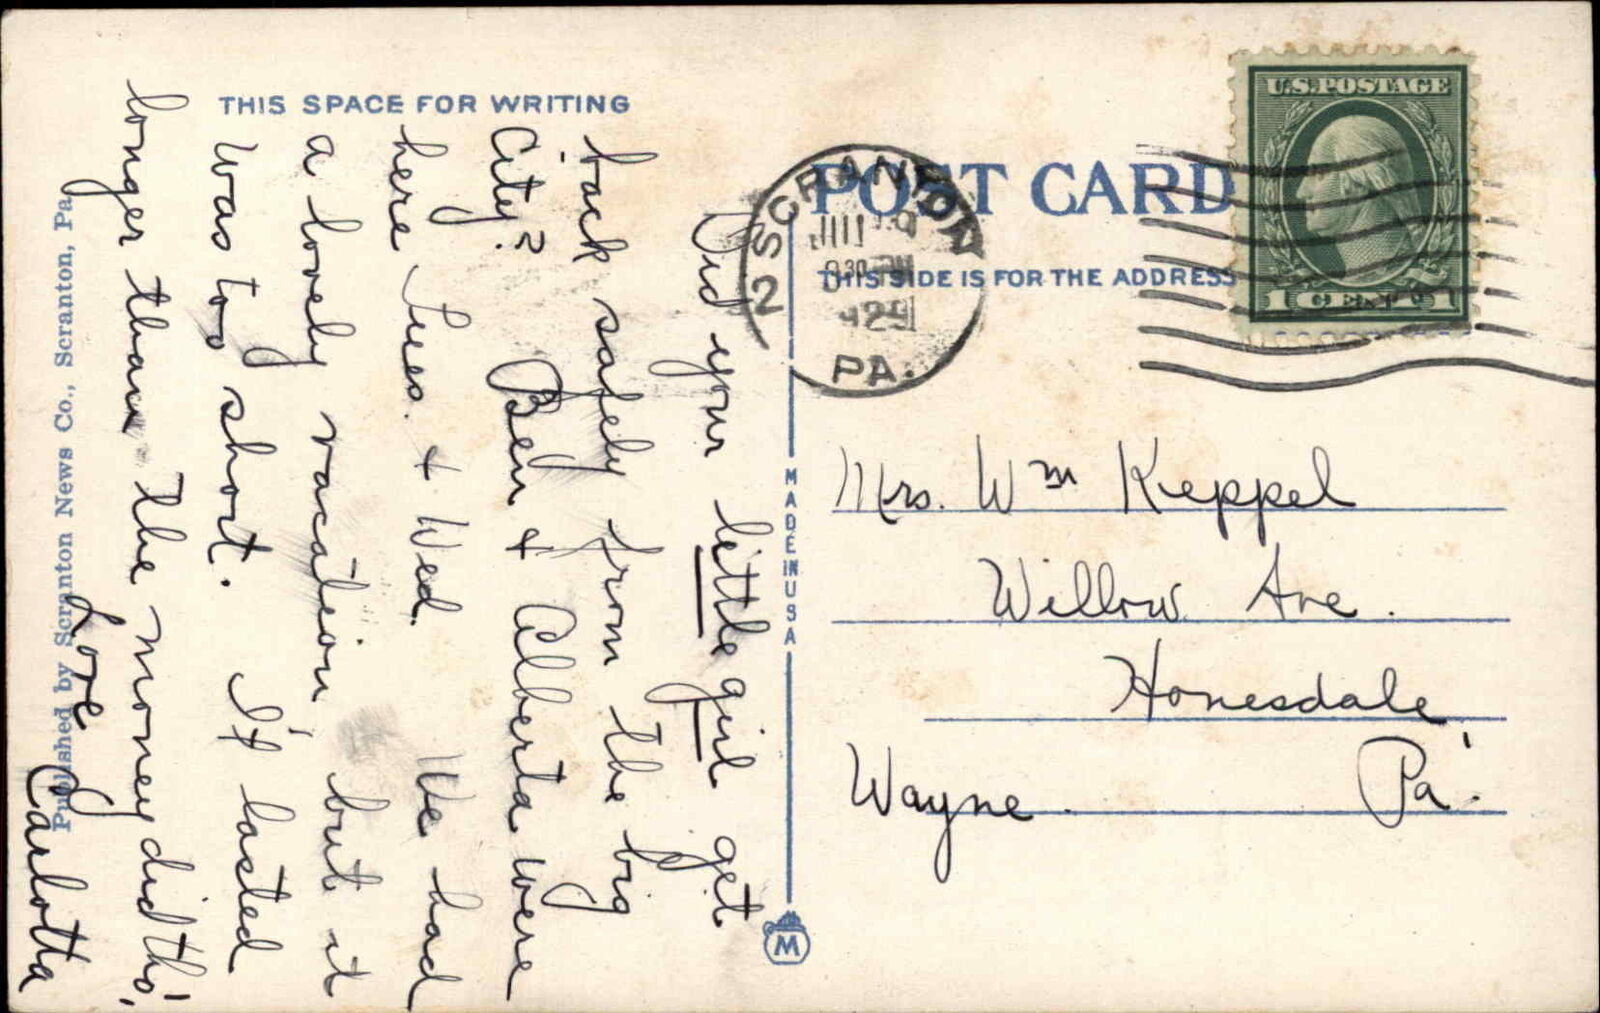 THIS SPACE FOR WRITING
Did your little girl get
back safely from the big
City? Ben & Alberta were
here Tues. & Wed. We had
a lovely vacation, but it
was too short. It lasted
longer than the money did tho',
Love
Carlotta
Published by Scranton News Co., Scranton, Pa.
POST CARD
THIS SIDE IS FOR THE ADDRESS
SCRANTON
2
PA.
U.S. POSTAGE
1 CENT 1
MADE IN USA
M
Mrs. Wm Keppel
Willow Ave.
Honesdale,
Wayne. Pa.